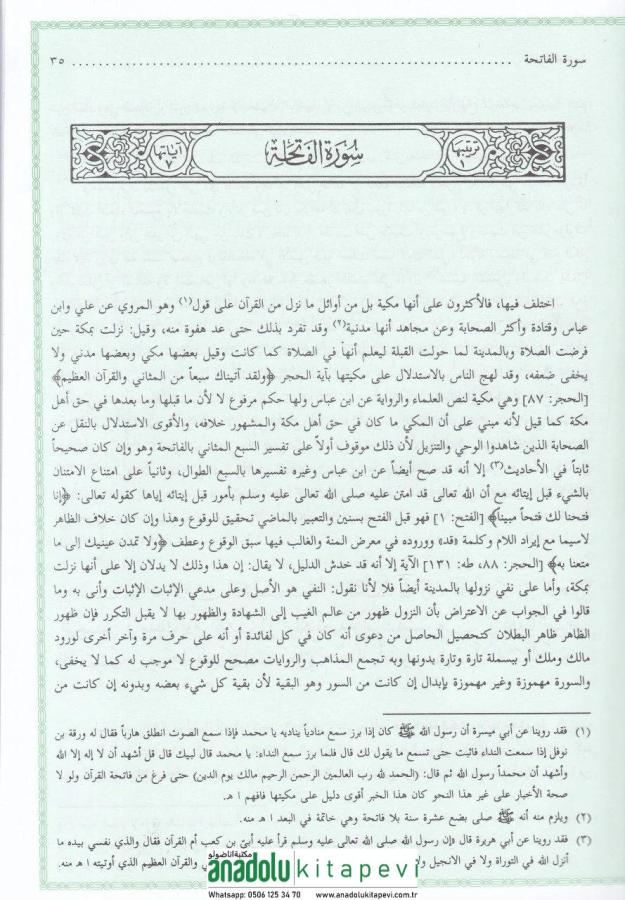 سورة الفاتحة ................................................................ ٣٥
ترتيبها ١ سُورَة الفَاتِحَة آياتها ٧
اختلف فيها، فالأكثرون على أنها مكية بل من أوائل ما نزل من القرآن على قول(١) وهو المروي عن علي وابن
عباس وقتادة وأكثر الصحابة وعن مجاهد أنها مدنية(٢) وقد تفرد بذلك حتى عد هفوة منه، وقيل: نزلت بمكة حين
فرضت الصلاة وبالمدينة لما حولت القبلة ليعلم أنها في الصلاة كما كانت وقيل بعضها مكي وبعضها مدني ولا
يخفى ضعفه، وقد لهج الناس بالاستدلال على مكيتها بآية الحجر ﴿ولقد آتيناك سبعاً من المثاني والقرآن العظيم﴾
[الحجر: ٨٧] وهي مكية لنص العلماء والرواية عن ابن عباس ولها حكم مرفوع لا لأن ما قبلها وما بعدها في حق أهل
مكة كما قيل لأنه مبني على أن المكي ما كان في حق أهل مكة والمشهور خلافه، والأقوى الاستدلال بالنقل عن
الصحابة الذين شاهدوا الوحي والتنزيل لأن ذلك موقوف أولاً على تفسير السبع المثاني بالفاتحة وهو وإن كان صحيحاً
ثابتاً في الأحاديث(٣) إلا أنه قد صح أيضاً عن ابن عباس وغيره تفسيرها بالسبع الطوال، وثانياً على امتناع الامتنان
بالشيء قبل إيتائه مع أن الله تعالى قد امتن عليه صلى الله تعالى عليه وسلم بأمور قبل إيتائه إياها كقوله تعالى: ﴿إنا
فتحنا لك فتحاً مبيناً﴾ [الفتح: ١] فهو قبل الفتح بسنين والتعبير بالماضي تحقيق للوقوع وهذا وإن كان خلاف الظاهر
لاسيما مع إيراد اللام وكلمة «قد» ووروده في معرض المنة والغالب فيها سبق الوقوع وعطف ﴿ولا تمدن عينيك إلى ما
متعنا به﴾ [الحجر: ٨٨، طه: ١٣١] الآية إلا أنه قد خدش الدليل، لا يقال: إن هذا وذلك لا يدلان إلا على أنها نزلت
بمكة، وأما على نفي نزولها بالمدينة أيضاً فلا لأنا نقول: النفي هو الأصل وعلى مدعي الإثبات الإثبات وأنى به وما
قالوا في الجواب عن الاعتراض بأن النزول ظهور من عالم الغيب إلى الشهادة والظهور بها لا يقبل التكرر فإن ظهور
الظاهر ظاهر البطلان كتحصيل الحاصل من دعوى أنه كان في كل لفائدة أو أنه على حرف مرة وآخر أخرى لورود
مالك وملك أو ببسملة تارة وتارة بدونها وبه تجمع المذاهب والروايات مصحح للوقوع لا موجب له كما لا يخفى،
والسورة مهموزة وغير مهموزة بإبدال إن كانت من السور وهو البقية لأن بقية كل شيء بعضه وبدونه إن كانت من
(١) فقد روينا عن أبي ميسرة أن رسول الله ﷺ كان إذا برز سمع منادياً يناديه يا محمد فإذا سمع الصوت انطلق هارباً فقال له ورقة بن
نوفل إذا سمعت النداء فاثبت حتى تسمع ما يقول لك قال فلما برز سمع النداء: يا محمد قال لبيك قال قل أشهد أن لا إله إلا الله
وأشهد أن محمداً رسول الله ثم قال: (الحمد لله رب العالمين الرحمن الرحيم مالك يوم الدين) حتى فرغ من فاتحة القرآن ولو لا
صحة الأخبار على غير هذا النحو كان هذا الخبر أقوى دليل على مكيتها فافهم ا هـ.
(٢) ويلزم منه أنه ﷺ صلى بضع عشرة سنة بلا فاتحة وهي خاتمة في البعد ا هـ منه.
(٣) فقد روينا عن أبي هريرة قال «إن رسول الله صلى الله تعالى عليه وسلم قرأ عليه أبيّ بن كعب أم القرآن فقال والذي نفسي بيده ما
أنزل الله في التوراة ولا في الانجيل ولا والقرآن العظيم الذي أوتيته ا هـ منه.
مكتبة اناضولو
anadolu kitapevi
Whatsapp: 0506 125 34 70 www.anadolukitapevi.com.tr